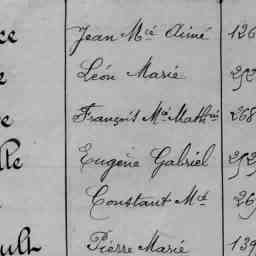 ce Jean Mie Aimé 126
e Léon Marie 252
e François Mie Mathin 268
lle Eugène Gabriel 252
Constant Mie 269
ult Pierre Marie 139